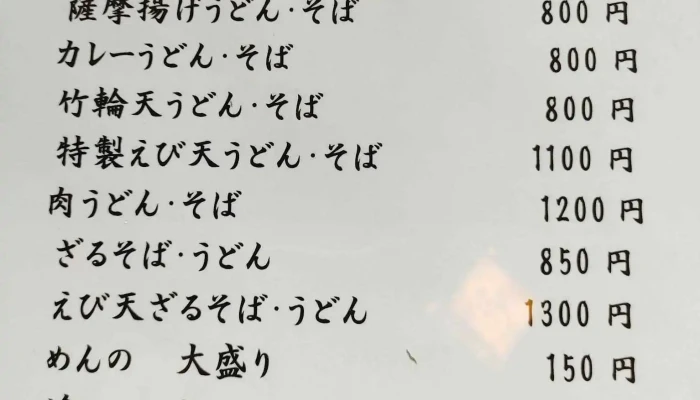 薩摩揚げうどん・そば 800 円
カレーうどん・そば 800 円
竹輪天うどん・そば 800 円
特製えび天うどん・そば 1100 円
肉うどん・そば 1200 円
ざるそば・うどん 850 円
えび天ざるそば・うどん 1300 円
めんの 大盛り 150 円